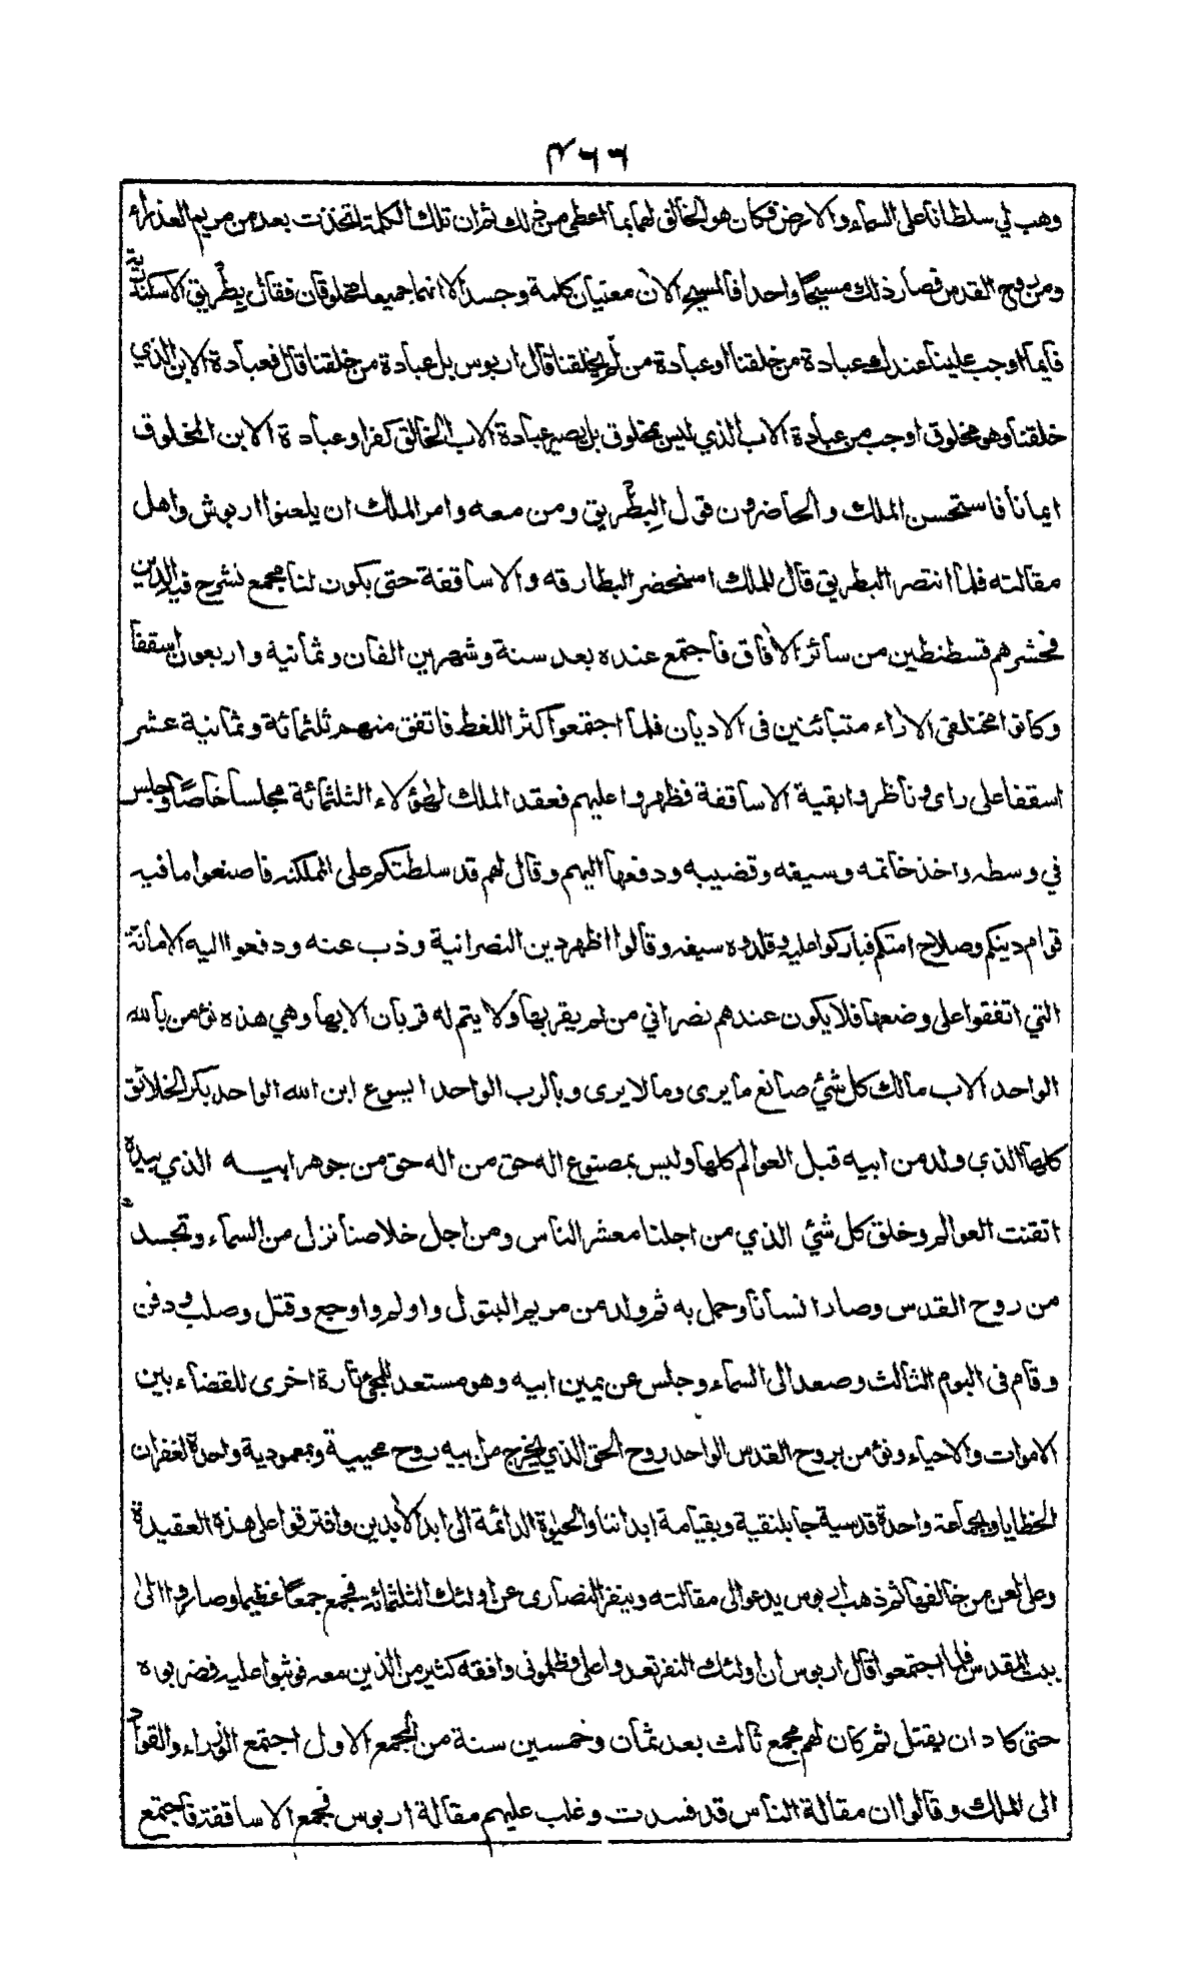 ٤٦٦
وهب لي سلطانا على السماء والارض فكان هو الخالق لهما بما اعطى من ذلك ثم ان تلك الكلمة اتخذت بعد من مريم العذراء
ومن روح القدس فصار ذلك مسيحًا واحدا فالمسيح الآن معنيان كلمة وجسد الا انهما جميعا مخلوقان فقال بِطْرِيق الاسكندرية
فأيما اوجب علينا عندك عبادة من خلقنا او عبادة من لم يخلقنا قال اريوس بل عبادة من خلقنا قال فعبادة الابن الذي
خلقنا وهو مخلوق اوجب من عبادة الاب الذي ليس بمخلوق بل يصير عبادة الاب الخالق كفرا وعبادة الابن المخلوق
ايمانا فاستحسن الملك والحاضرون قول البِطْريق ومن معه وامر الملك ان يلعنوا اريوش واهل
مقالته فلما انتصر البطريق قال للملك استحضر البطارقه والاساقفة حتى يكون لنا مجمع نشرح فيه الدين
فحشرهم قسطنطين من سائر الآفاق فاجتمع عنده بعد سنة وشهرين الفان وثمانيه واربعون اسقفا
وكانوا مختلفي الآراء متبائنين فى الاديان فلما اجتمعوا كثر اللغط فاتفق منهم ثلثمائة وثمانية عشر
اسقفا على راى وناظروا بقية الاساقفة فظهروا عليهم فعقد الملك لهؤلاء الثلثمائة مجلسا خاصًا وجلس
في وسطه واخذ خاتمه وسيفه وقضيبه ودفعها اليهم وقال لهم قد سلطتكم على المملكه فاصنعوا ما فيه
قوام دينكم وصلاح امتكم فباركوا عليه وقلدوه سيفه وقالوا اظهر دين النصرانية وذب عنه ودفعوا اليه الامانة
التي اتفقوا على وضعها فلا يكون عندهم نصراني من لم يقر بها ولا يتم له قربان الا بها وهي هذه نؤمن بالله
الواحد الاب مالك كل شئ صانع ما يرى وما لا يرى وبالرب الواحد ايسوع ابن الله الواحد بكر الخلائق
كلها الذي ولد من ابيه قبل العوالم كلها وليس بمصنوع اله حق من اله حق من جوهر ابيه الذي بيده
اتقنت العوالم وخلق كل شئ الذي من اجلنا معشر الناس ومن اجل خلاصنا نزل من السماء وتجسد
من روح القدس وصار انسانا وحمل به ثم ولد من مريم البتول واولم واوجع وقتل وصلب ودفن
وقام فى اليوم الثالث وصعد الى السماء وجلس عن يمين ابيه وهو مستعد للمجئ تارة اخرى للقضاء بين
الاموات والاحياء ونؤمن بروح القدس الواحد روح الحق الذي يخرج من ابيه روح محيية وبمعمودية واحدة لغفران
الخطايا وبجماعة واحدة قدسية جاثليقية وبقيامة ابداننا والحيوة الدائمة الى ابد الآبدين وافترقوا على هذه العقيدة
وعلى لعن من خالفها ثم ذهب اريوس يدعو الى مقالته وينفر النصارى عن اولئك الثلثمائة فجمع جمعًا عظيما وصاروا الى
بيت المقدس فلما اجتمعوا قال اريوس ان اولئك النفر تعدوا على وظلمونى ووافقه كثير من الذين معه فوثبوا عليه فضربوه
حتى كاد ان يقتل ثم كان لهم مجمع ثالث بعد ثمان وخمسين سنة من المجمع الاول اجتمع الوزراء والقواد
الى الملك وقالوا ان مقالة الناس قد فسدت وغلب عليهم مقالة اريوس فجمع الاساقفة فاجتمع